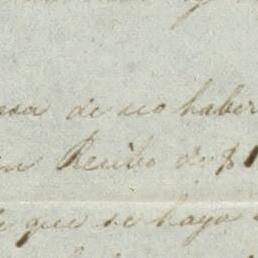 esa de no haber
un Recibo de $1
de que se haya